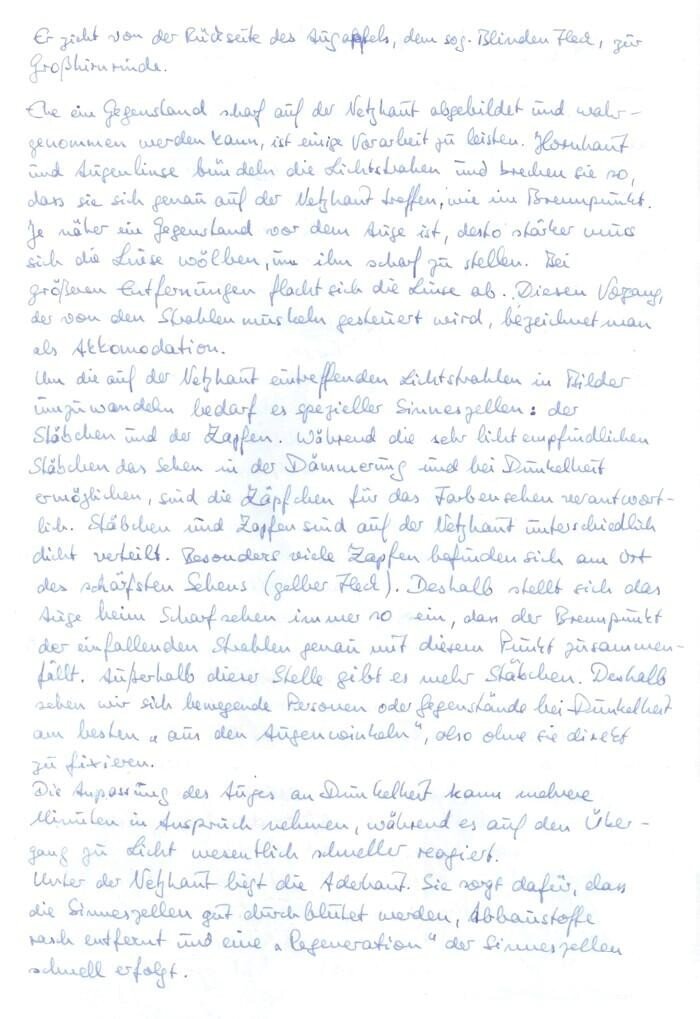 Er zieht von der Rückseite des Augapfels, dem sog. Blinden Fleck, zur
Großhirnrinde.
Ehe ein Gegenstand scharf auf der Netzhaut abgebildet und wahr-
genommen werden kann, ist einige Vorarbeit zu leisten. Hornhaut
und Augenlinse bündeln die Lichtstrahlen und brechen sie so,
dass sie sich genau auf der Netzhaut treffen, wie im Brennpunkt.
Je näher ein Gegenstand vor dem Auge ist, desto stärker muss
sich die Linse wölben, um ihn scharf zu stellen. Bei
größeren Entfernungen flacht sich die Linse ab. Diesen Vorgang,
der von den Strahlenmuskeln gesteuert wird, bezeichnet man
als Akkomodation.
Um die auf der Netzhaut eintreffenden Lichtstrahlen in Bilder
umzuwandeln bedarf es spezieller Sinneszellen: der
Stäbchen und der Zapfen. Während die sehr lichtempfindlichen
Stäbchen das Sehen in der Dämmerung und bei Dunkelheit
ermöglichen, sind die Zäpfchen für das Farbensehen verantwort-
lich. Stäbchen und Zapfen sind auf der Netzhaut unterschiedlich
dicht verteilt. Besonders viele Zapfen befinden sich am Ort
des schärfsten Sehens (gelber Fleck). Deshalb stellt sich das
Auge beim Scharfsehen immer so ein, dass der Brennpunkt
der einfallenden Strahlen genau mit diesem Punkt zusammen-
fällt. Außerhalb dieser Stelle gibt es mehr Stäbchen. Deshalb
sehen wir sich bewegende Personen oder Gegenstände bei Dunkelheit
am besten „aus den Augenwinkeln", also ohne sie direkt
zu fixieren.
Die Anpassung des Auges an Dunkelheit kann mehrere
Minuten in Anspruch nehmen, während es auf den Über-
gang zu Licht wesentlich schneller reagiert.
Unter der Netzhaut liegt die Aderhaut. Sie sorgt dafür, dass
die Sinneszellen gut durchblutet werden, Abbaustoffe
rasch entfernt und eine „Regeneration" der Sinneszellen
schnell erfolgt.